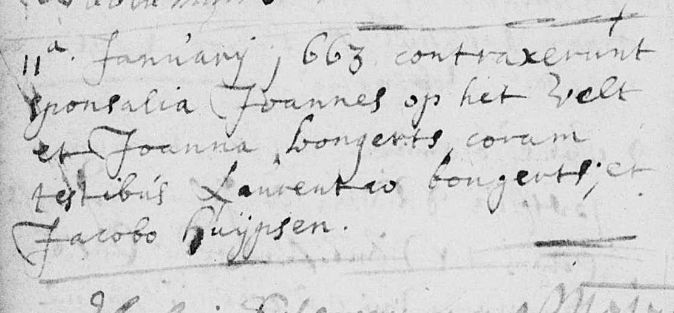 11a. January 1663 contraxerunt
sponsalia Joannes op het Velt
et Joanna bongerts, coram
testibus Laurentio bongerts, et
Jacobo huijpsen.